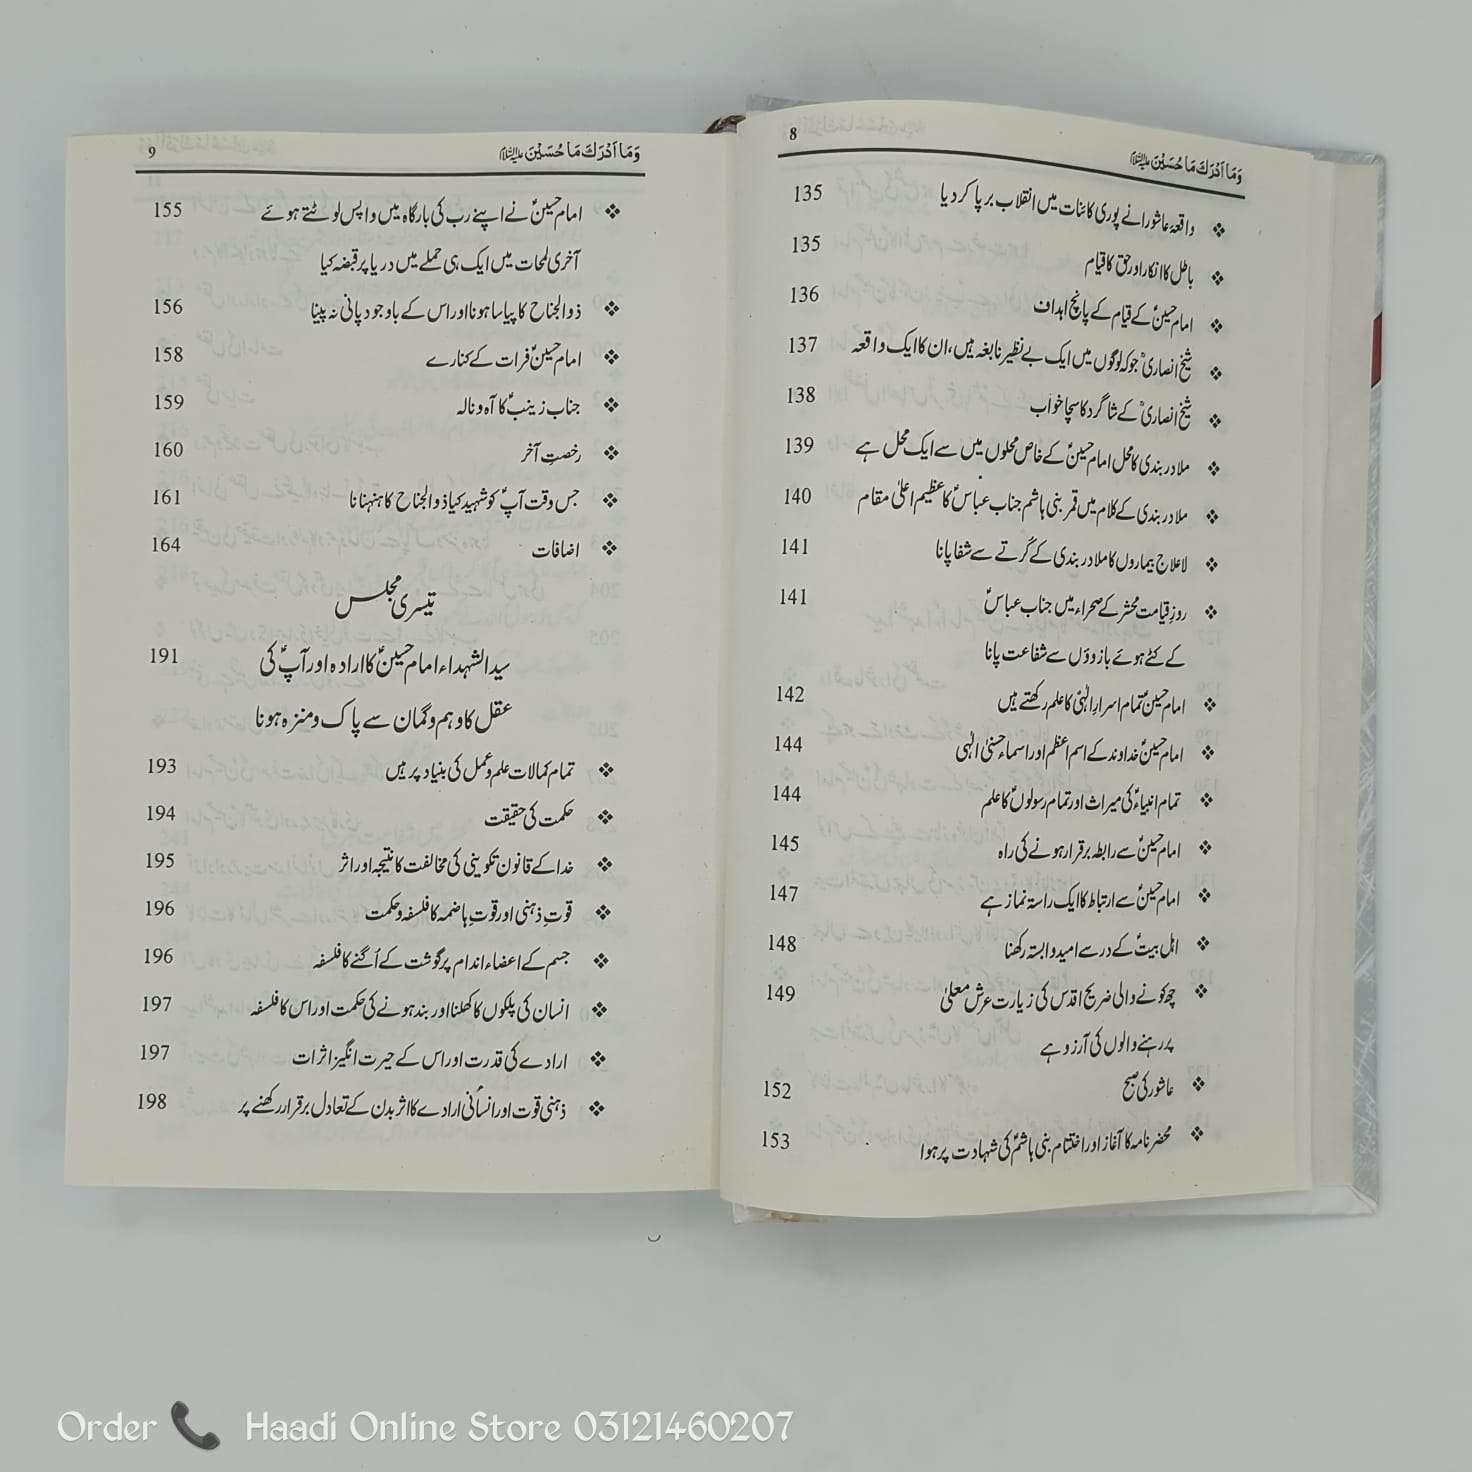 8 وَمَا اَدْرَكَ مَا حُسَیْنؑ
❖ واقعۂ عاشورا نے پوری کائنات میں انقلاب برپا کر دیا 135
❖ باطل کا انکار اور حق کا قیام 135
❖ امام حسینؑ کے قیام کے پانچ اہداف 136
❖ شیخ انصاریؒ جو کہ لوگوں میں ایک بے نظیر نابغہ ہیں، ان کا ایک واقعہ 137
❖ شیخ انصاریؒ کے شاگرد کا سچا خواب 138
❖ ملا دربندی کا محل امام حسینؑ کے خاص محلوں میں سے ایک محل ہے 139
❖ ملا دربندی کے کلام میں قمر بنی ہاشم جناب عباسؑ کا عظیم اعلیٰ مقام 140
❖ لاعلاج بیماروں کا ملا دربندی کے کُرتے سے شفا پانا 141
❖ روزِ قیامت محشر کے صحراء میں جناب عباسؑ 141
کے کٹے ہوئے بازوؤں سے شفاعت پانا
❖ امام حسینؑ تمام اسرارِ الٰہی کا علم رکھتے ہیں 142
❖ امام حسینؑ خداوند کے اسم اعظم اور اسماء حسنیٰ الٰہی 144
❖ تمام انبیاءؑ کی میراث اور تمام رسولوںؑ کا علم 144
❖ امام حسینؑ سے رابطہ برقرار ہونے کی راہ 145
❖ امام حسینؑ سے ارتباط کا ایک راستہ نماز ہے 147
❖ اہل بیتؑ کے در سے امید وابستہ رکھنا 148
❖ چھ کونے والی ضریح اقدس کی زیارت عرش معلیٰ 149
پر رہنے والوں کی آرزو ہے
❖ عاشور کی صبح 152
❖ محضر نامہ کا آغاز اور اختتام بنی ہاشمؑ کی شہادت پر ہوا 153
9 وَمَا اَدْرَكَ مَا حُسَیْنؑ
❖ امام حسینؑ نے اپنے رب کی بارگاہ میں واپس لوٹتے ہوئے 155
آخری لمحات میں ایک ہی حملے میں دریا پر قبضہ کیا
❖ ذوالجناح کا پیاسا ہونا اور اس کے باوجود پانی نہ پینا 156
❖ امام حسینؑ فرات کے کنارے 158
❖ جناب زینبؑ کا آہ و نالہ 159
❖ رخصتِ آخر 160
❖ جس وقت آپؑ کو شہید کیا ذوالجناح کا ہنہنانا 161
❖ اضافات 164
تیسری مجلس
سید الشہداء امام حسینؑ کا ارادہ اور آپؑ کی 191
عقل کا وہم و گمان سے پاک و منزہ ہونا
❖ تمام کمالات علم و عمل کی بنیاد پر ہیں 193
❖ حکمت کی حقیقت 194
❖ خدا کے قانون تکوینی کی مخالفت کا نتیجہ اور اثر 195
❖ قوتِ ذہنی اور قوتِ ہاضمہ کا فلسفہ و حکمت 196
❖ جسم کے اعضاء اندام پر گوشت کے اُگنے کا فلسفہ 196
❖ انسان کی پلکوں کا کھلنا اور بند ہونے کی حکمت اور اس کا فلسفہ 197
❖ ارادے کی قدرت اور اس کے حیرت انگیز اثرات 197
❖ ذہنی قوت اور انسانی ارادے کا اثر بدن کے تعادل برقرار رکھنے پر 198
Order 📞 Haadi Online Store 03121460207